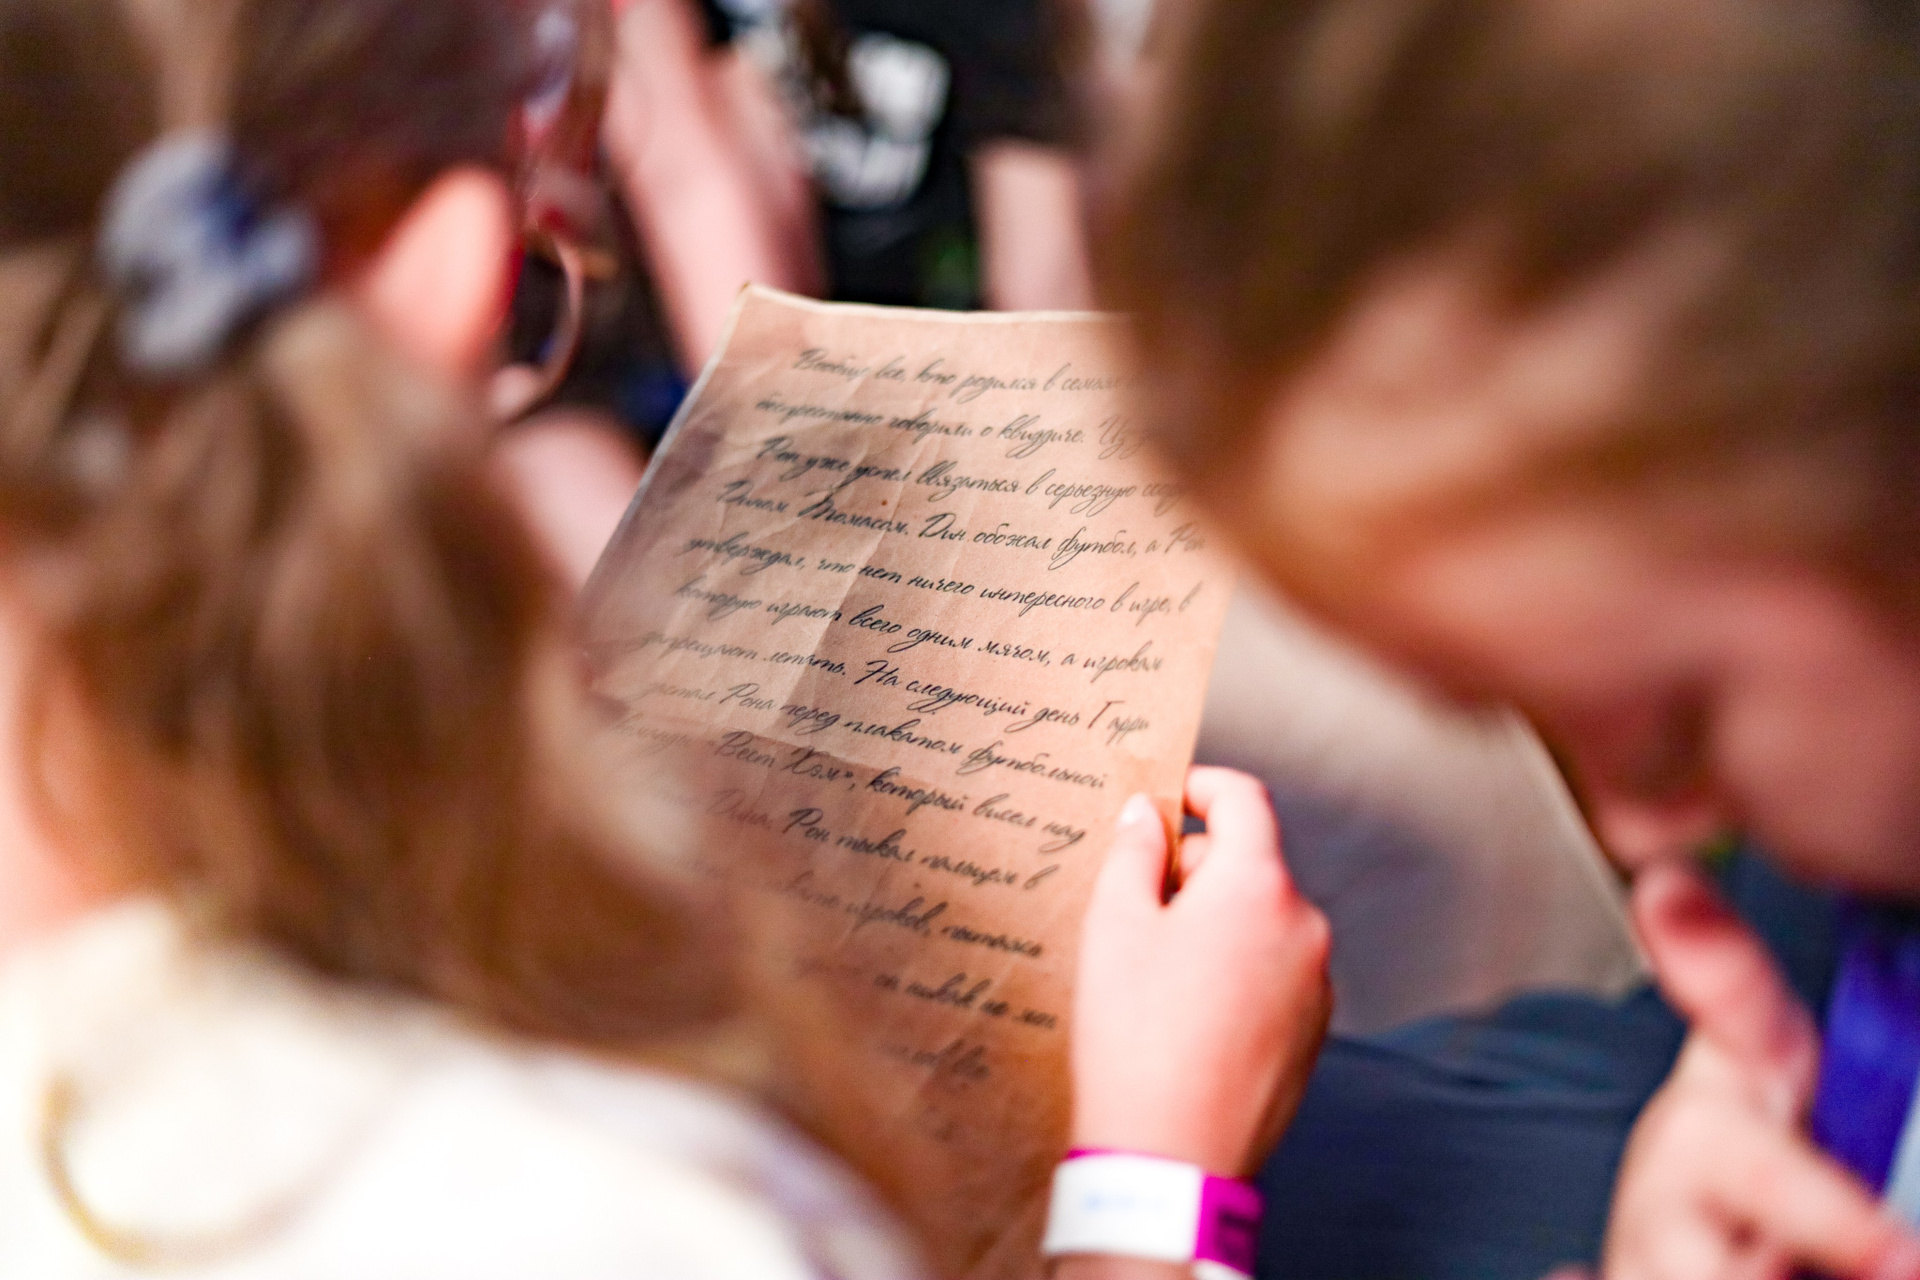 Вообще все, кто родился в семьях
беспрестанно говорили о квиддиче. Из
Рон уже успел ввязаться в серьезную
Дином Томасом. Дин обожал футбол, а Рон
утверждал, что нет ничего интересного в игре, в
которую играют всего одним мячом, а игрокам
запрещают летать. На следующий день Гарри
застал Рона перед плакатом футбольной
команды «Вест Хэм», который висел над
Дина. Рон тыкал пальцем в
игроков, пытаясь